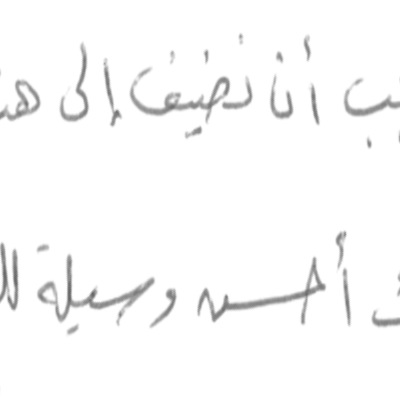 أن نضيف إلى
أحسن وسيلة